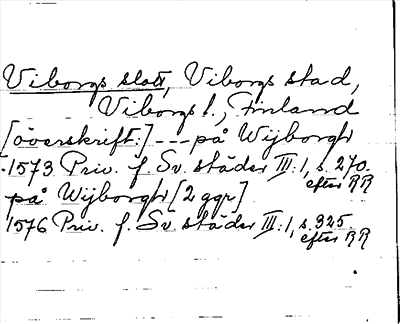 Viborgs slott, Viborgs stad,
Viborgs l., Finland
[överskrift:] --- på Wijborgh
1573 Priv. f. Sv. städer III:1, s. 270.
efter RR
på Wijborgh [2 ggr]
1576 Priv. f. Sv. städer III:1, s. 325.
efter RR